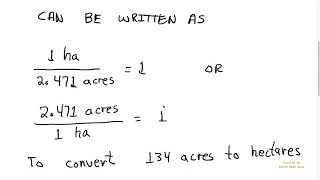 CAN BE WRITTEN AS
1 ha
2.471 acres = 1 OR
2.471 acres
1 ha = 1
To convert 134 acres to hectares